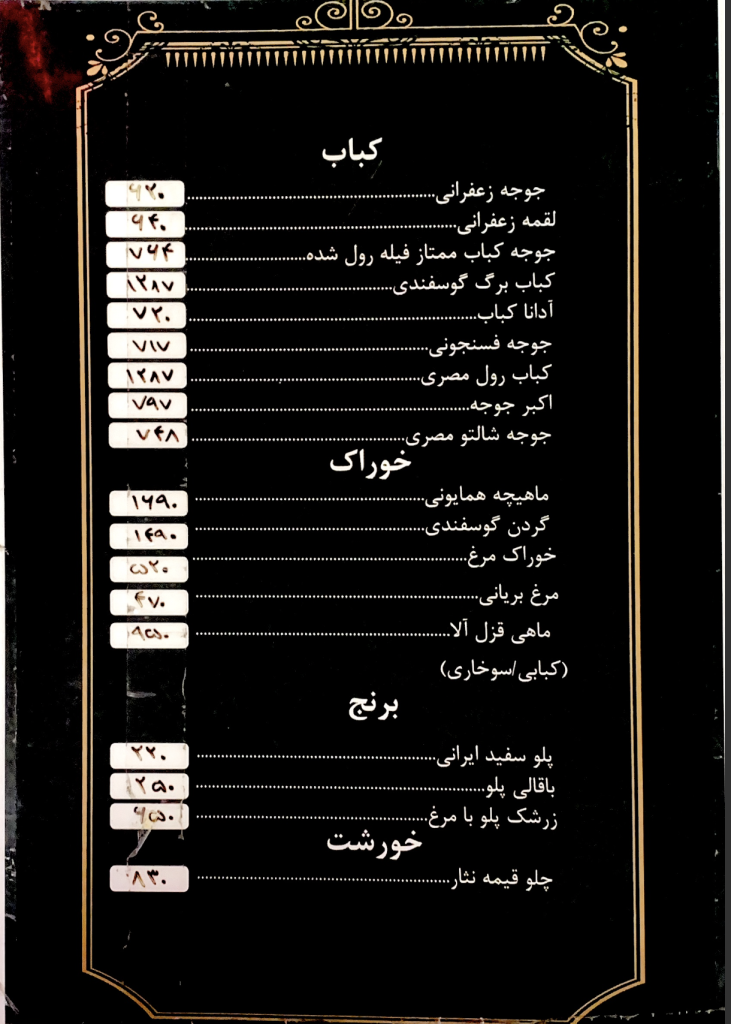 کباب
جوجه زعفرانی ۶۲۰
لقمه زعفرانی ۶۴۰
جوجه کباب ممتاز فیله رول شده ۷۶۴
کباب برگ گوسفندی ۱۲۸۷
آدانا کباب ۷۲۰
جوجه فسنجونی ۷۱۷
کباب رول مصری ۱۲۸۷
اکبر جوجه ۷۹۷
جوجه شالتو مصری ۷۴۸
خوراک
ماهیچه همایونی ۱۶۹۰
گردن گوسفندی ۱۴۹۰
خوراک مرغ ۵۲۰
مرغ بریانی ۴۷۰
ماهی قزل آلا ۹۵۰
(کبابی/سوخاری)
برنج
پلو سفید ایرانی ۲۲۰
باقالی پلو ۲۵۰
زرشک پلو با مرغ ۶۵۰
خورشت
چلو قیمه نثار ۸۳۰